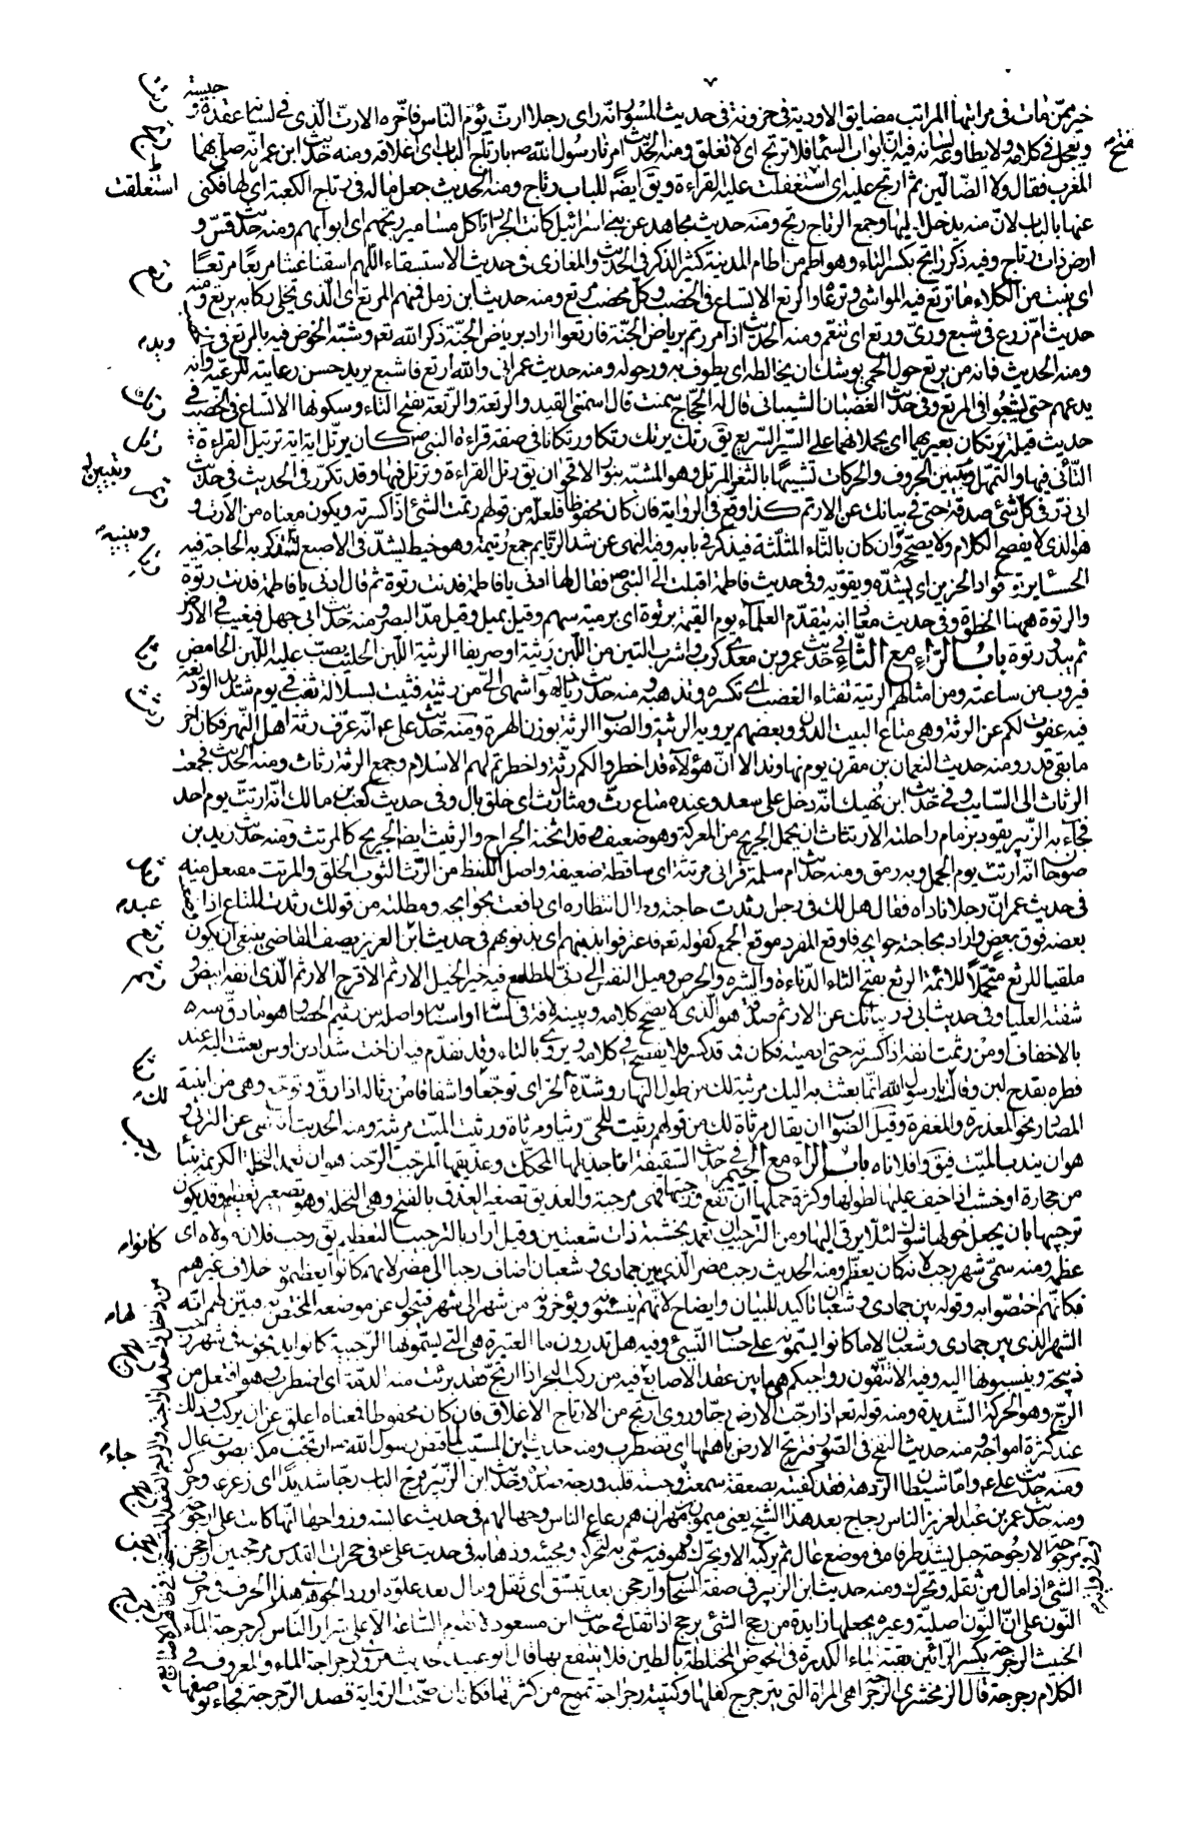 خير ممن مات فى مراتبها المراتب مضايق الاودية فى حزونة فى حديث المسور انه راى رجلا ارت يؤم الناس فاخره الارت الذى فى لسانه عقدة و حبسة
ويعجل فى كلامه ولا يطاوعه لسانه فيه ان ابواب السماء تفتح فلا ترتج اى لا تغلق ومنه الحديث امرنا رسول الله بارتاج الباب اى اغلاقه ومنه حديث ابن عمر انه صلى بهما
المغرب فقال ولا الضالين ثم ارتج عليه اى استغلقت عليه القراءة ويق ايضا للباب رتاج ومنه الحديث جعل ماله فى رتاج الكعبة اى لها فكنى
عنها بالباب لان منه يدخل اليها وجمع الرتاج رتج ومنه حديث مجاهد عن بنى اسرائيل كانت الجراد تاكل مسامير رتجهم اى ابوابهم ومنه حديث قس و
ارض ذات رتاج وفيه ذكر راتج بكسر التاء وهو اطم من اطام المدينة كثير الذكر فى الحديث والمغازى فى حديث الاستسقاء اللهم اسقنا غيثا مربعا مرتعا
اى ينبت من الكلاء ما ترتع فيه المواشى وترعاه والرتع الاتساع فى الخصب وكل مخصب مرتع ومنه حديث ابن زمل فمنهم المرتع اى الذى يخلى ركابه يرتع ومنه
حديث ام زرع فى شبع ورى ورتع اى تنعم ومنه الحديث اذا مررتم برياض الجنة فارتعوا اراد برياض الجنة ذكر الله تعه وشبه الخوض فيه بالرتع فى
ومنه الحديث فانه من يرتع حول الحمى يوشك ان يخالطه اى يطوف به ويدور حوله ومنه حديث عمر انى والله ارتع فاشبع يريد حسن رعايته للرعية وانه
يدعهم حتى يشبعوا فى المرتع وفى حديث الغضبان الشيبانى قال له الحجاج سمنت قال اسمننى القيد والرتعة والرتعة بفتح التاء وسكونها الاتساع فى الخصب فى
حديث قيلة يرتكان بعيريهما اى يحملانهما على السير السريع يق رتك يرتك رتكا ورتكانا فى صفة قراءة النبى كان يرتل اية اية ترتيل القراءة
التانى فيها والتمهل وتبيين الحروف والحركات تشبيها بالثغر المرتل وهو المشبه بنور الاقحوان يق رتل القراءة وترتل فيها وقد تكرر فى الحديث فى حديث
ابى ذر فى كل شئ صدقة حتى فى بيانك عن الارتم كذا وقع فى الرواية فان كان محفوظا فلعله من قولهم رتمت الشئ اذا كسرته ويكون معناه من الارت و
هو الذى لا يفصح الكلام ولا يصححه وان كان بالثاء المثلثة فيذكر فى بابه وفيه النهى عن شد الرتايم جمع رتيمة وهو خيط يشد فى الاصبع لتستذكر به الحاجة فيه
الحساء يرتو فؤاد الحزين اى يشده ويقويه وفى حديث فاطمة اقبلت الى النبى فقال لها ادنى يا فاطمة فدنت رتوة ثم قال ادنى يا فاطمة فدنت رتوة
والرتوة ههنا الخطوة وفى حديث معاذ انه يتقدم العلماء يوم القيمة برتوة اى برمية سهم وقيل بميل وقيل مد البصر ومنه حديث ابى جهل فيغيب فى الارض
ثم يبدو رتوة باب الراء مع الثاء فى حديث عمرو بن معدى كرب واشرب التبن من اللبن رثيئة او صريفا الرثيئة اللبن الحليب يصب عليه اللبن الحامض
فيروب من ساعته ومن امثالهم الرثيئة تفثاء الغضب اى تكسره وتذهبه ومنه حديث زياد لهو اشهى الى من رثيئة فثئت بسلالة ثغب فى يوم شديد الوديقة
فيه عفوت لكم عن الرثة وهى متاع البيت الدون وبعضهم يرويه الرثية والصواب الرثة بوزن الهرة ومنه حديث على انه عرف رثة اهل النهر فكان اخر
ما بقى قدر ومنه حديث النعمان بن مقرن يوم نهاوند الا ان هؤلاء قد اخطروا لكم رثة واخطرتم لهم الاسلام وجمع الرثة رثاث ومنه الحديث فجمعت
الرثاث الى السايب وفى حديث ابن نهيك انه دخل على سعد وعنده متاع رث ومثال رث اى خلق بال وفى حديث كعب بن مالك انه ارتث يوم احد
فجاء به الزبير يقود بزمام راحلته الارتثاث ان يحمل الجريح من المعركة وهو ضعيف قد اثخنته الجراح والرثيث ايضا الجريح كالمرتث ومنه حديث زيد بن
صوحان انه ارتث يوم الجمل وبه رمق ومنه حديث ام سلمة فرانى مرتثة اى ساقطة ضعيفة واصل اللفظ من الرث الثوب الخلق والمرتث مفتعل منه
فى حديث عمر ان رجلا ناداه فقال هل لك فى رجل رثدت حاجته وطال انتظاره اى دافعت بحوايجه ومطلته من قولك رثدت المتاع اذا
بعضه فوق بعض واراد بحاجته حوايجه فاوقع المفرد موقع الجمع كقوله تعه فاعترفوا بذنبهم اى بذنوبهم فى حديث ابن العزيز يصف القاضى ينبغى ان يكون
ملقيا للرثع متحملا للائمة الرثع بفتح الثاء الدناءة والشره والحرص وميل النفس الى دنى المطامع فيه خير الخيل الارثم الاقرح الارثم الذى انفه ابيض و
شفته العليا وفى حديث ابى ذر بيانك عن الارثم صدقة هو الذى لا يصحح كلامه ولا يبينه لافة فى لسانه او اسنانه واصله من رثيم الحصا وهو ما دق منه
بالاخفاف او من رثمت انفه اذا كسرته حتى ادميته فكان فمه قد كسر فلا يفصح فى كلامه ويروى بالتاء وقد تقدم فيه ان اخت شداد بن اوس بعثت اليه عند
فطره بقدح لبن وقالت يا رسول الله انما بعثت به اليك مرثية لك من طول النهار وشدة الحر اى توجعا واشفاقا من رثا له اذا رق وتوجع وهى من ابنية
المصادر نحو المعذرة والمغفرة وقيل الصواب ان يقال مرثاة لك من قولهم رثيت للحى رثيا ومرثاة ورثيت الميت مرثية ومنه الحديث انه نهى عن الترثى و
هو ان يندب الميت فيق وافلاناه باب الراء مع الجيم فى حديث السقيفة انا جذيلها المحكك وعذيقها المرجب الرجبة هو ان تعمد النخلة الكريمة ببناء
من حجارة او خشب اذا خيف عليها لطولها وكثرة حملها ان تقع ورجبتها فهى مرجبة والعذيق تصغير العذق بالفتح وهى النخلة وهو تصغير تعظيم وقد يكون
ترجيبها بان يجعل حولها شوك لئلا يرقى اليها ومن الترجيب ان تعمد بخشبة ذات شعبتين وقيل اراد بالترجيب التعظيم يق رجب فلان مولاه اى
عظمه ومنه سمى شهر رجب لانه كان يعظم ومنه الحديث رجب مضر الذى بين جمادى وشعبان اضاف رجبا الى مضر لانهم كانوا يعظمونه خلاف غيرهم
فكانهم اختصوا به وقوله بين جمادى وشعبان تاكيد للبيان وايضاح لانهم كانوا ينسئونه ويؤخرونه من شهر الى شهر فيتحول عن موضعه المختص به فبين لهم انه
الشهر الذى بين جمادى وشعبان لا ما كانوا يسمونه على حساب النسئ وفيه هل تدرون ما العتيرة هى التى يسمونها الرجبية كانوا يذبحون فى شهر رجب
ذبيحة وينسبونها اليه وفيه الا تنقون رواجبكم هى ما بين عقد الاصابع فيه من ركب البحر اذا ارتج فقد برئت منه الذمة اى اضطرب وهو افتعل من
الرج وهو الحركة الشديدة ومنه قوله تعه اذا رجت الارض رجا وروى ارتج من الارتاج الاغلاق فان كان محفوظا فمعناه اغلق عن ان يركب وذلك
عند كثرة امواجه ومنه حديث النفخ فى الصور فترتج الارض باهلها اى تضطرب ومنه حديث ابن المسيب لما قبض رسول الله ارتجت مكة بصوت عال
ومنه حديث على واما شيطان الردهة فقد كفيته بصعقة سمعت لها وجبة قلبه ورجة صدره وحديث ابن الزبير فرج الباب رجا شديدا اى زعزعه وحركه
ومنه حديث عمر بن عبد العزيز الناس رجاج بعد هذا الشيخ يعنى ميمون بن مهران هم رعاع الناس وجهالهم فى حديث عائشة وزواجها انها كانت على ارجوحة
مرجوحة الارجوحة حبل يشد طرفاه فى موضع عال ثم يركبه الانسان ويحرك وهو فيه سمى به لتحركه ومجيئه وذهابه فى حديث على فى حجرات القدس مرجحنين ارجحن
الشئ اذا مال من ثقله وتحرك ومنه حديث ابن الزبير فى صفة السحاب وارجحن بعد تبسق اى ثقل ومال بعد علوه اورد الجوهرى هذا الحرف فى حرف
النون على ان النون اصلية وغيره يجعلها زايدة من رجح الشئ يرجح اذا ثقل فى حديث ابن مسعود لا تقوم الساعة الا على شرار الناس كرجرجة الماء
الخبيث الرجرجة بكسر الرائين بقية الماء الكدرة فى الحوض المختلطة بالطين فلا ينتفع بها قال ابو عبيد الحديث يروى كرجراجة الماء والمعروف فى
الكلام رجرجة قال الزمخشرى الرجراجة هى المراة التى يترجرج كفلها وكتيبة رجراجة تموج من كثرتها فكان ان صحت الرواية قصد الرجرجة فجاء بوصفها